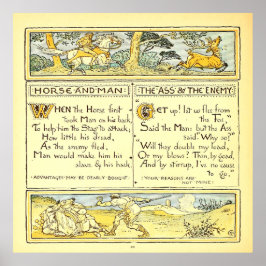 HORSE AND MAN:
WHEN the Horse first
took Man on his back,
To help him the Stag to attack;
How little his dread,
As the enemy fled,
Man would make him his
slave & his hack.
·ADVANTAGES MAY BE DEARLY BOUGHT·
THE ASS & THE ENEMY:
"GET up! let us flee from
the Foe,"
Said the Man: but the Ass
said, "Why so?"
"Will they double my load,
Or my blows? Then, by goad,
And by stirrup, I've no cause
to Go."
·YOUR REASONS ARE
NOT MINE·